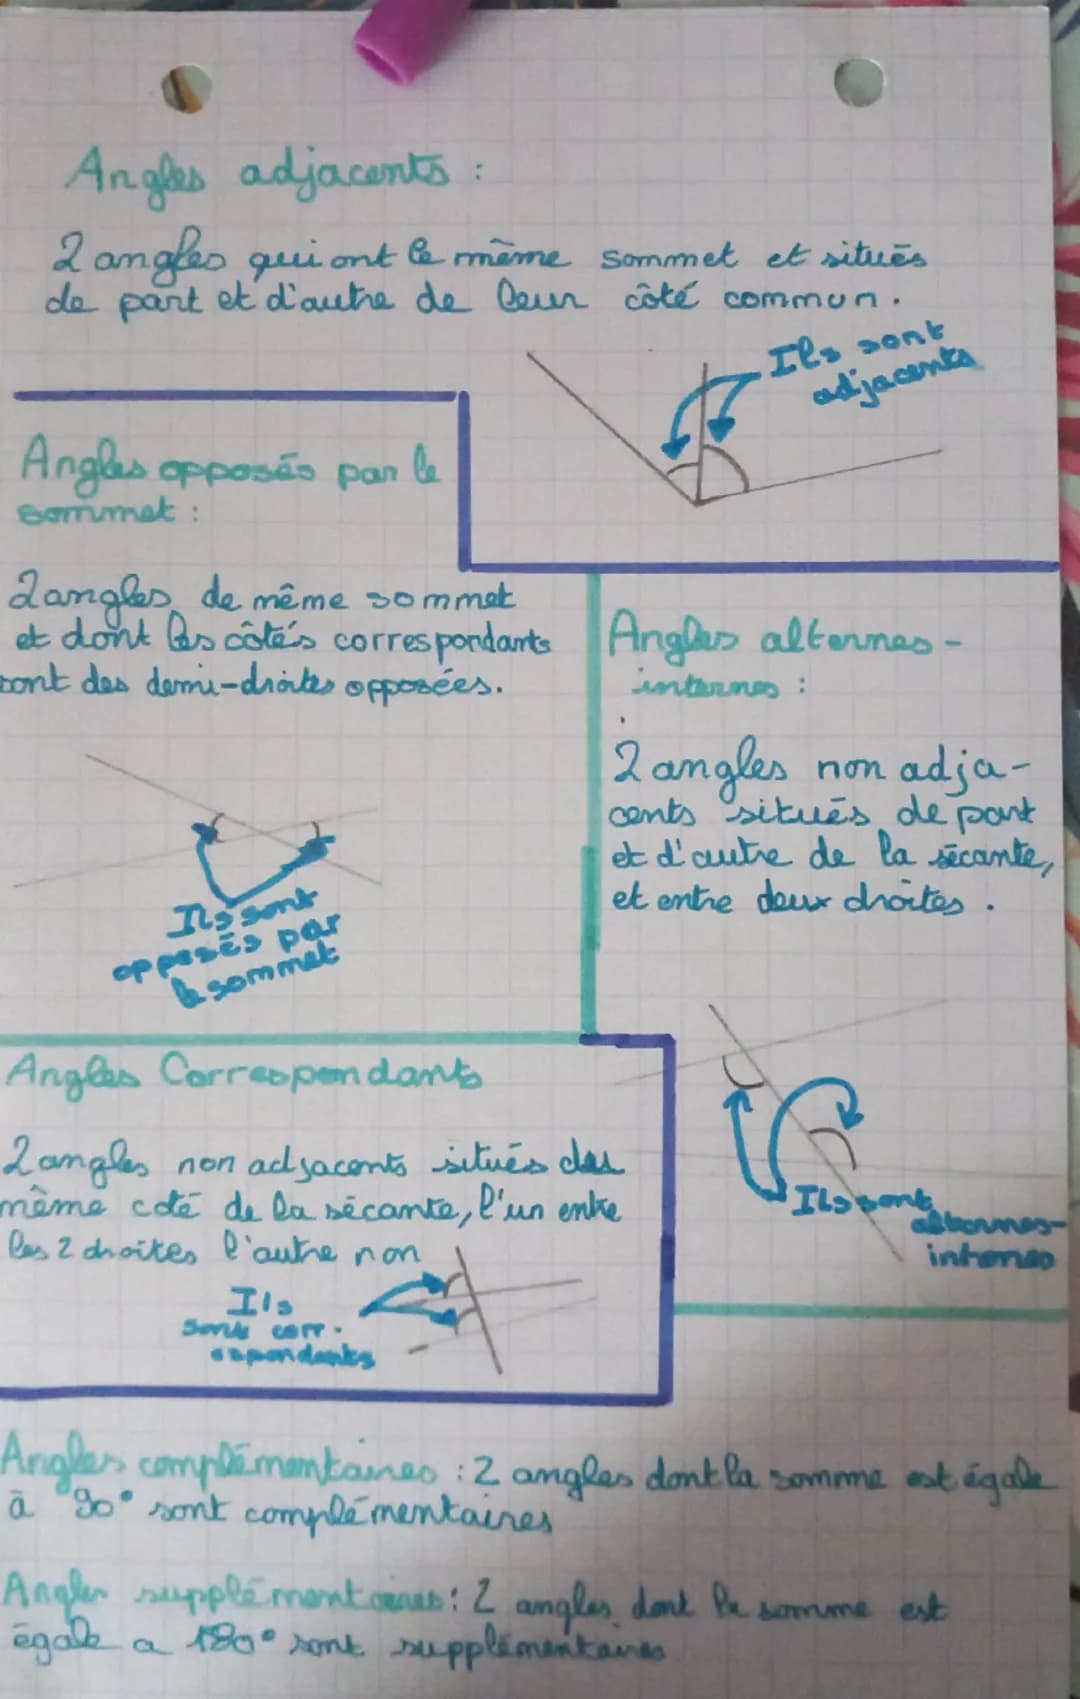 Angles adjacents :
2 angles qui ont le même sommet et situés
de part et d'autre de leur côté commun.
Ils sont
adjacents
Angles opposés par le
sommet :
2 angles de même sommet
et dont les côtés correspondants
sont des demi-droites opposées.
Ils sont
opposés par
le sommet
Angles alternes-
internes :
2 angles non adja-
cents situés de part
et d'autre de la sécante,
et entre deux droites.
Ils sont
alternes-
internes
Angles Correspondants
2 angles non adjacents situés des
même coté de la sécante, l'un entre
les 2 droites l'autre non
Ils
sont corr-
espondants
Angles complémentaires : 2 angles dont la somme est égale
à 90° sont complémentaires
Angles supplémentaires : 2 angles dont la somme est
égale a 180° sont supplémentaires